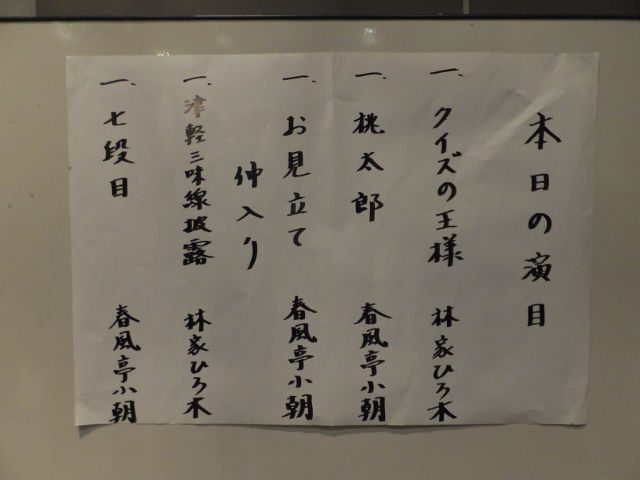 本日の演目
一、クイズの王様 林家ひろ木
一、桃太郎 春風亭小朝
一、お見立て 春風亭小朝
仲入り
一、津軽三味線披露 林家ひろ木
一、七段目 春風亭小朝